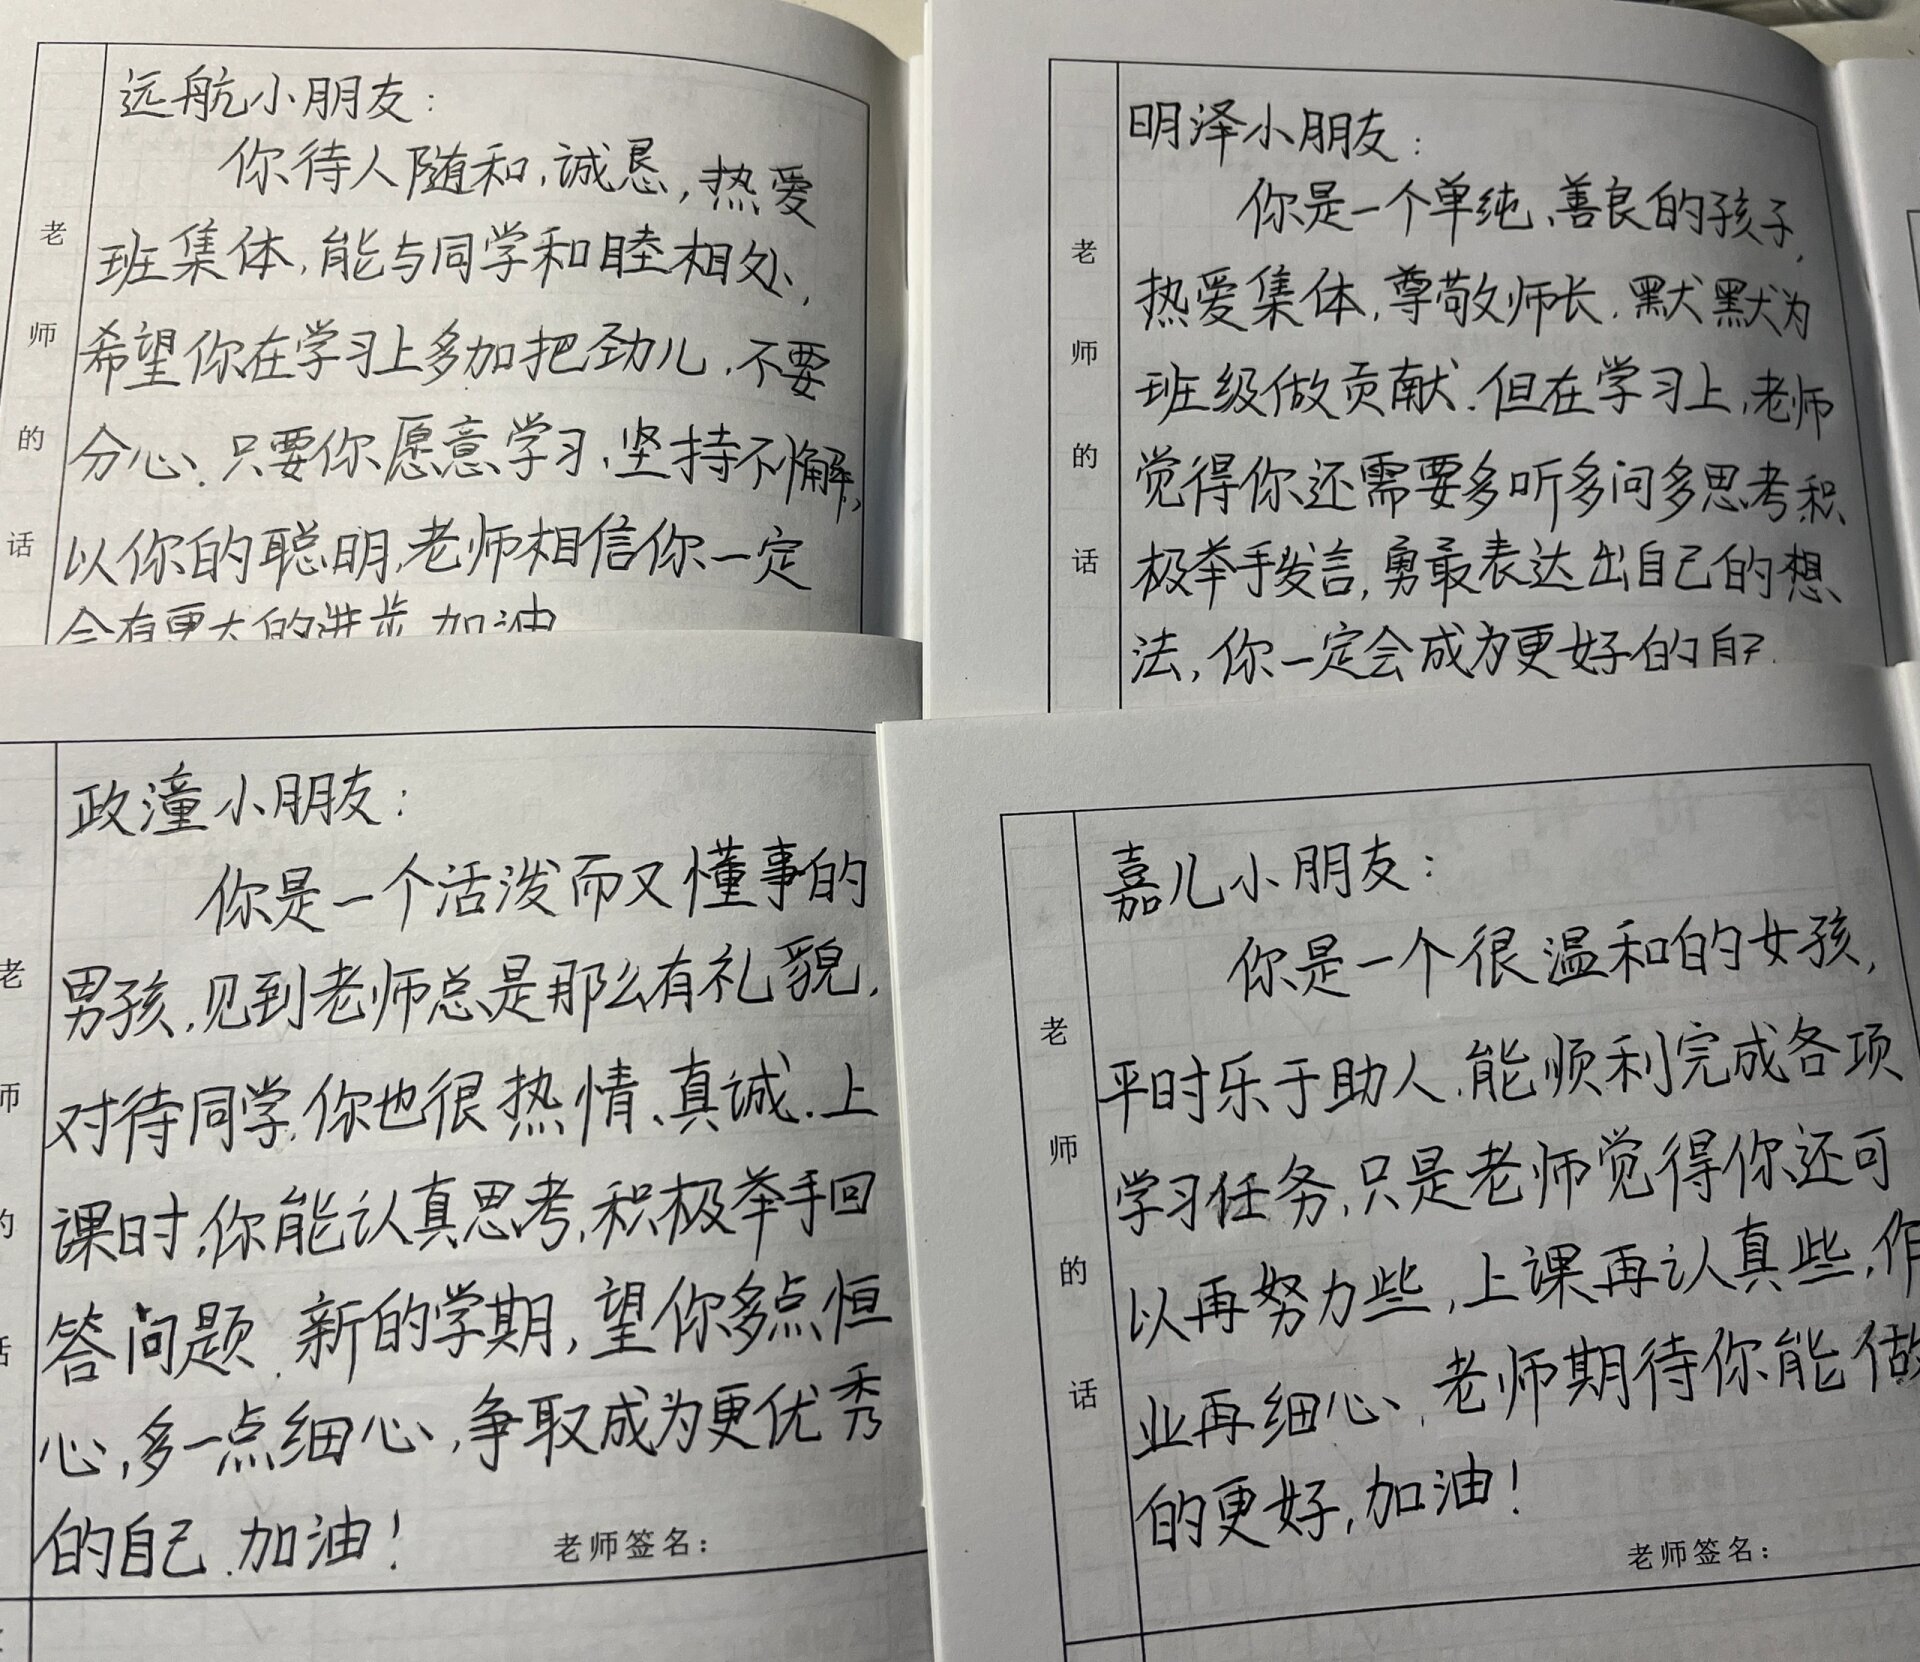 老师的话
远航小朋友：
你待人随和，诚恳，热爱
班集体，能与同学和睦相处，
希望你在学习上多加把劲儿，不要
分心、只要你愿意学习，坚持不懈，
以你的聪明，老师相信你一定
会有更大的进步 加油
老师的话
明泽小朋友：
你是一个单纯、善良的孩子，
热爱集体，尊敬师长，默默为
班级做贡献．但在学习上，老师
觉得你还需要多听多问多思考积
极举手发言，勇最表达出自己的想
法，你一定会成为更好的自己
老师的话
政潼小朋友：
你是一个活泼而又懂事的
男孩，见到老师总是那么有礼貌，
对待同学，你也很热情、真诚．上
课时，你能认真思考，积极举手回
答问题．新的学期，望你多点恒
心，多一点细心，争取成为更优秀
的自己．加油！
老师签名：
老师的话
嘉儿小朋友：
你是一个很温和的女孩，
平时乐于助人，能顺利完成各项
学习任务，只是老师觉得你还可
以再努力些，上课再认真些，作
业再细心、老师期待你能做
的更好，加油！
老师签名：